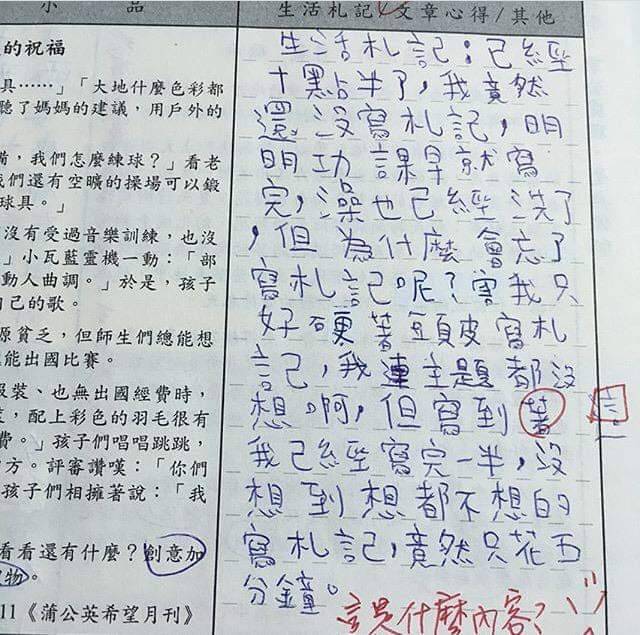 小品
生活札記/文章心得/其他
的祝福
具……」「大地什麼色彩都
聽了媽媽的建議，用戶外的
備，我們怎麼練球？」看老
我們還有空曠的操場可以鍛
球具。」
沒有受過音樂訓練，也沒
」小瓦藍靈機一動：「部
動人曲調。」於是，孩子
自己的歌。
源貧乏，但師生們總能想
能出國比賽。
服裝、也無出國經費時，
，配上彩色的羽毛很有
費。」孩子們唱唱跳跳，
方。評審讚嘆：「你們
孩子們相擁著說：「我
看看還有什麼？創意加
物。
11《蒲公英希望月刊》
生活札記：已經
十點半了，我竟然
還沒寫札記，明
明功課早就寫
完，澡也已經洗了
，但為什麼會忘了
寫札記呢？害我只
好硬著頭皮寫札
記，我連主題都沒
想啊，但寫到著
我已經寫完一半，沒
想到想都不想的
寫札記，竟然只花五
分鐘。
這是什麼內容？